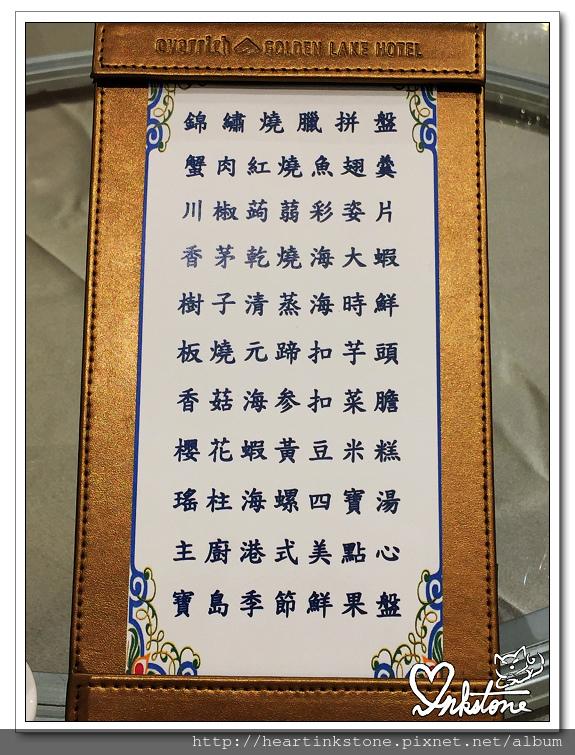 everrich GOLDEN LAKE HOTEL
錦繡燒臘拼盤
蟹肉紅燒魚翅羹
川椒蒟蒻彩姿片
香茅乾燒海大蝦
樹子清蒸海時鮮
板燒元蹄扣芋頭
香菇海参扣菜膽
櫻花蝦黃豆米糕
瑤柱海螺四寶湯
主廚港式美點心
寶島季節鮮果盤
Inkstone
http://heartinkstone.pixnet.net/album